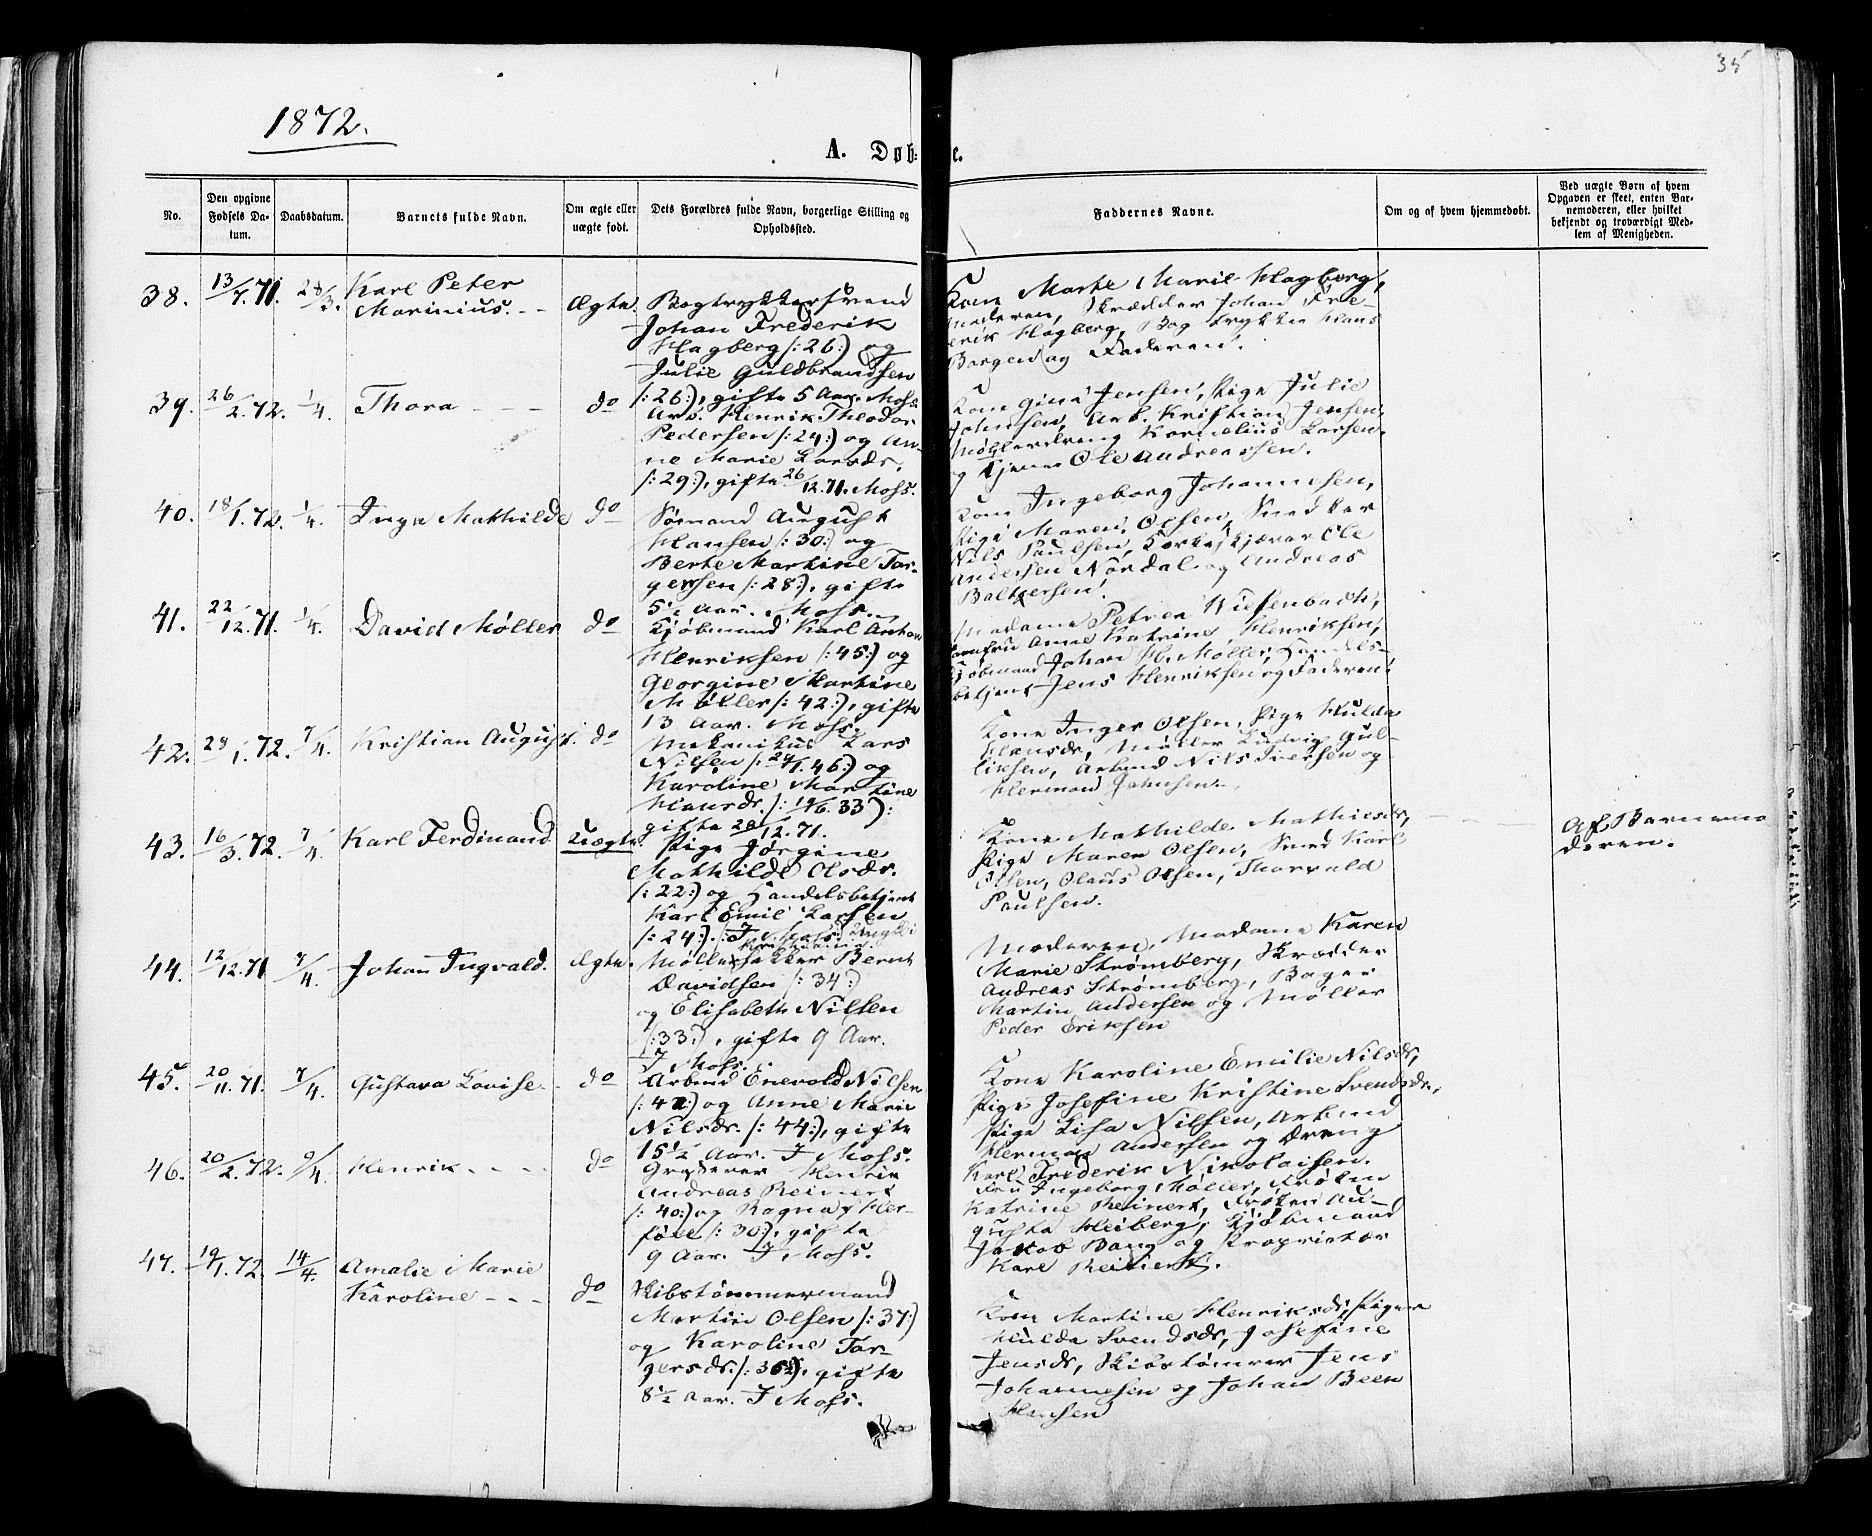 35
1872.
A. Døb: e.
No.
Den opgivne Fødsels Da-tum.
Daabsdatum.
Barnets fulde Navn.
Om ægte eller uægte født.
Dets Forældres fulde Navn, borgerlige Stilling og Opholdssted.
Faddernes Navne.
Om og af hvem hjemmedøbt.
Ved uægte Børn af hvem Opgaven er skeet, enten Bar-nemoderen, eller hvilket bekjendt og troværdigt Med-lem af Menigheden.
38. 28/3. Karl Peter
Marinius. - - Ægte.
Bogtrykkersvend
Johan Frederik
Hagberg /: 26:) og
Julie Guldbrandsen
/: 26:), gifte 5 Aar. Moss.
Kone Marte Marie Hagberg,
Moderen, Skrædder Johan Fre-
erik Hagberg, Bogtrykker Hans
Borgen og Faderen.
39. 26/2.72. 1/4. Thora - - - do
Arb. Henrik Theodor
Pedersen /: 24:) og An-
ne Marie Larsdr.
/: 29:), gifte 26/12.71. Moss.
Kone Gina Jensen, Pige Julie
Johnsen, Arb. Kristian Jensen,
Møllerdreng Kornelius Larsen
og Ole Andreassen.
40. 18/1.72. 1/4. Inga Mathilde do
Sømand August
Hansen /: 30:) og
Berte Martine Tor-
gersen /: 28:), gifte
5½ Aar. Moss.
Kone Ingeborg Johannesen,
Pige Maren Olsen, Snedker
Nils Paulsen, Korkeskjærer Ole
Andersen Nordal og Andreas
Baltzersen.
41. 22/12.71. 1/4. David Møller do
Kjøbmand Karl Anton
Henriksen /: 45:) og
Georgine Martine
Møller /: 42:), gifte
13 Aar. Moss.
Madame Petrea Wiesenbach,
Anne Katrine Henriksen,
Kjøbmand Johan H. Møller, Handels-
betjent Jens Henriksen og Faderen.
42. 28/1.72. 7/4. Kristian August. do
Mekanikus Lars
Nilsen /: 24/1.46:) og
Karoline Martine
Hansdr. /: 19/6.33):
gifte 28/12.71.
Kone Inger Olsen, Pige Hulda
Hansdr, Møller Ludvig Gul-
liksen, Arbmd Nils Iversen og
Herman Johnsen.
43. 16/3.72. 7/4. Karl Ferdinand Uægte.
Pige Jørgine
Mathilde Olsdr.
/: 22:) og Handelsbetjent
Karl Emil Larsen
/: 24:). /: I Moss: Ungkl i
Kristiania.
Kone Mathilde Mathiesdr,
Pige Maren Olsen, Smed Karl
Olsen, Olaus Olsen, Thorvald
Paulsen.
- - -
Af Barnemo
deren.
44. 12/12.71 7/4. Johan Ingvald. Ægte.
Møllersvend Bernt
Davidsen /: 34:)
og Elisabeth Nilsen
/: 33:), gifte 9 Aar.
I Moss.
Moderen, Madame Karen
Marie Strømberg, Skrædder
Andreas Strømberg, Bager
Martin Andersen og Møller
Peder Eriksen
45. 20/11.71. 7/4. Gustava Lovise. - do
Arbmd Enevold Nilsen
/: 42:) og Anne Marie
Nilsdr. /: 44:), gifte
15½ Aar. I Moss.
Kone Karoline Emilie Nilsdr,
Pige Josefine Kristine Svendsdr,
Pige Lisa Nilsen, Arbmd
Herman Andersen og Dreng
Karl Frederik Nikolaisen.
46. 20/2.72. 9/4. Henrik - - - - do
Grosserer Henrik
Andreas Reinert
/: 40:) og Ragna Her-
føll /: 30:), gifte
9 Aar. I Moss.
Fru Ingeborg Møller, Frøken
Katrine Reinert, Frøken Au-
gusta Heiberg, Kjøbmand
Jakob Bang og Proprietær
Karl Reinert.
47. 19/1.72. 14/4. Amalie Marie
Karoline - - - do
Skibstømmermand
Martin Olsen /: 37:)
og Karoline Tor-
gersdr. /: 36½:), gifte
8½ Aar. I Moss.
Kone Martine Henriksdr, Piger
Hulda Svendsdr, Josefine
Jensdr, Skibstømrer Jens
Johannesen og Johan Been
Hansen